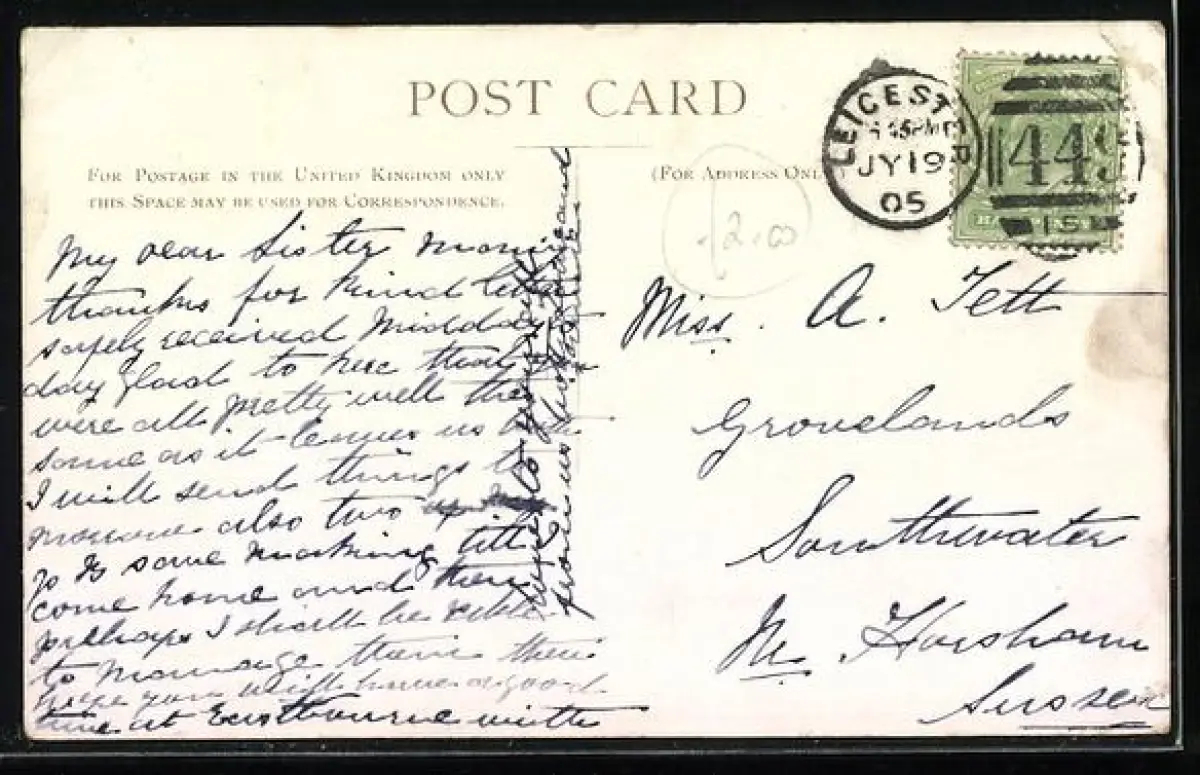 POST CARD
FOR POSTAGE IN THE UNITED KINGDOM ONLY
THIS SPACE MAY BE USED FOR CORRESPONDENCE.
(FOR ADDRESS ONLY
LEICESTER
45PM
JY 19
05
449
15
HALFPENNY
My dear Sister Many
thanks for kind letter
safely received Midday
day glad to hear that you
were all pretty well the
same as it leaves us both
I will send things
also two
some marking till I
come home and then
perhaps I shall be able
to manage them
hope you will have a good
time at Eastbourne with
from us
Miss. A. Tett
Grovelands
Southwater
Nr. Horsham
Sussex